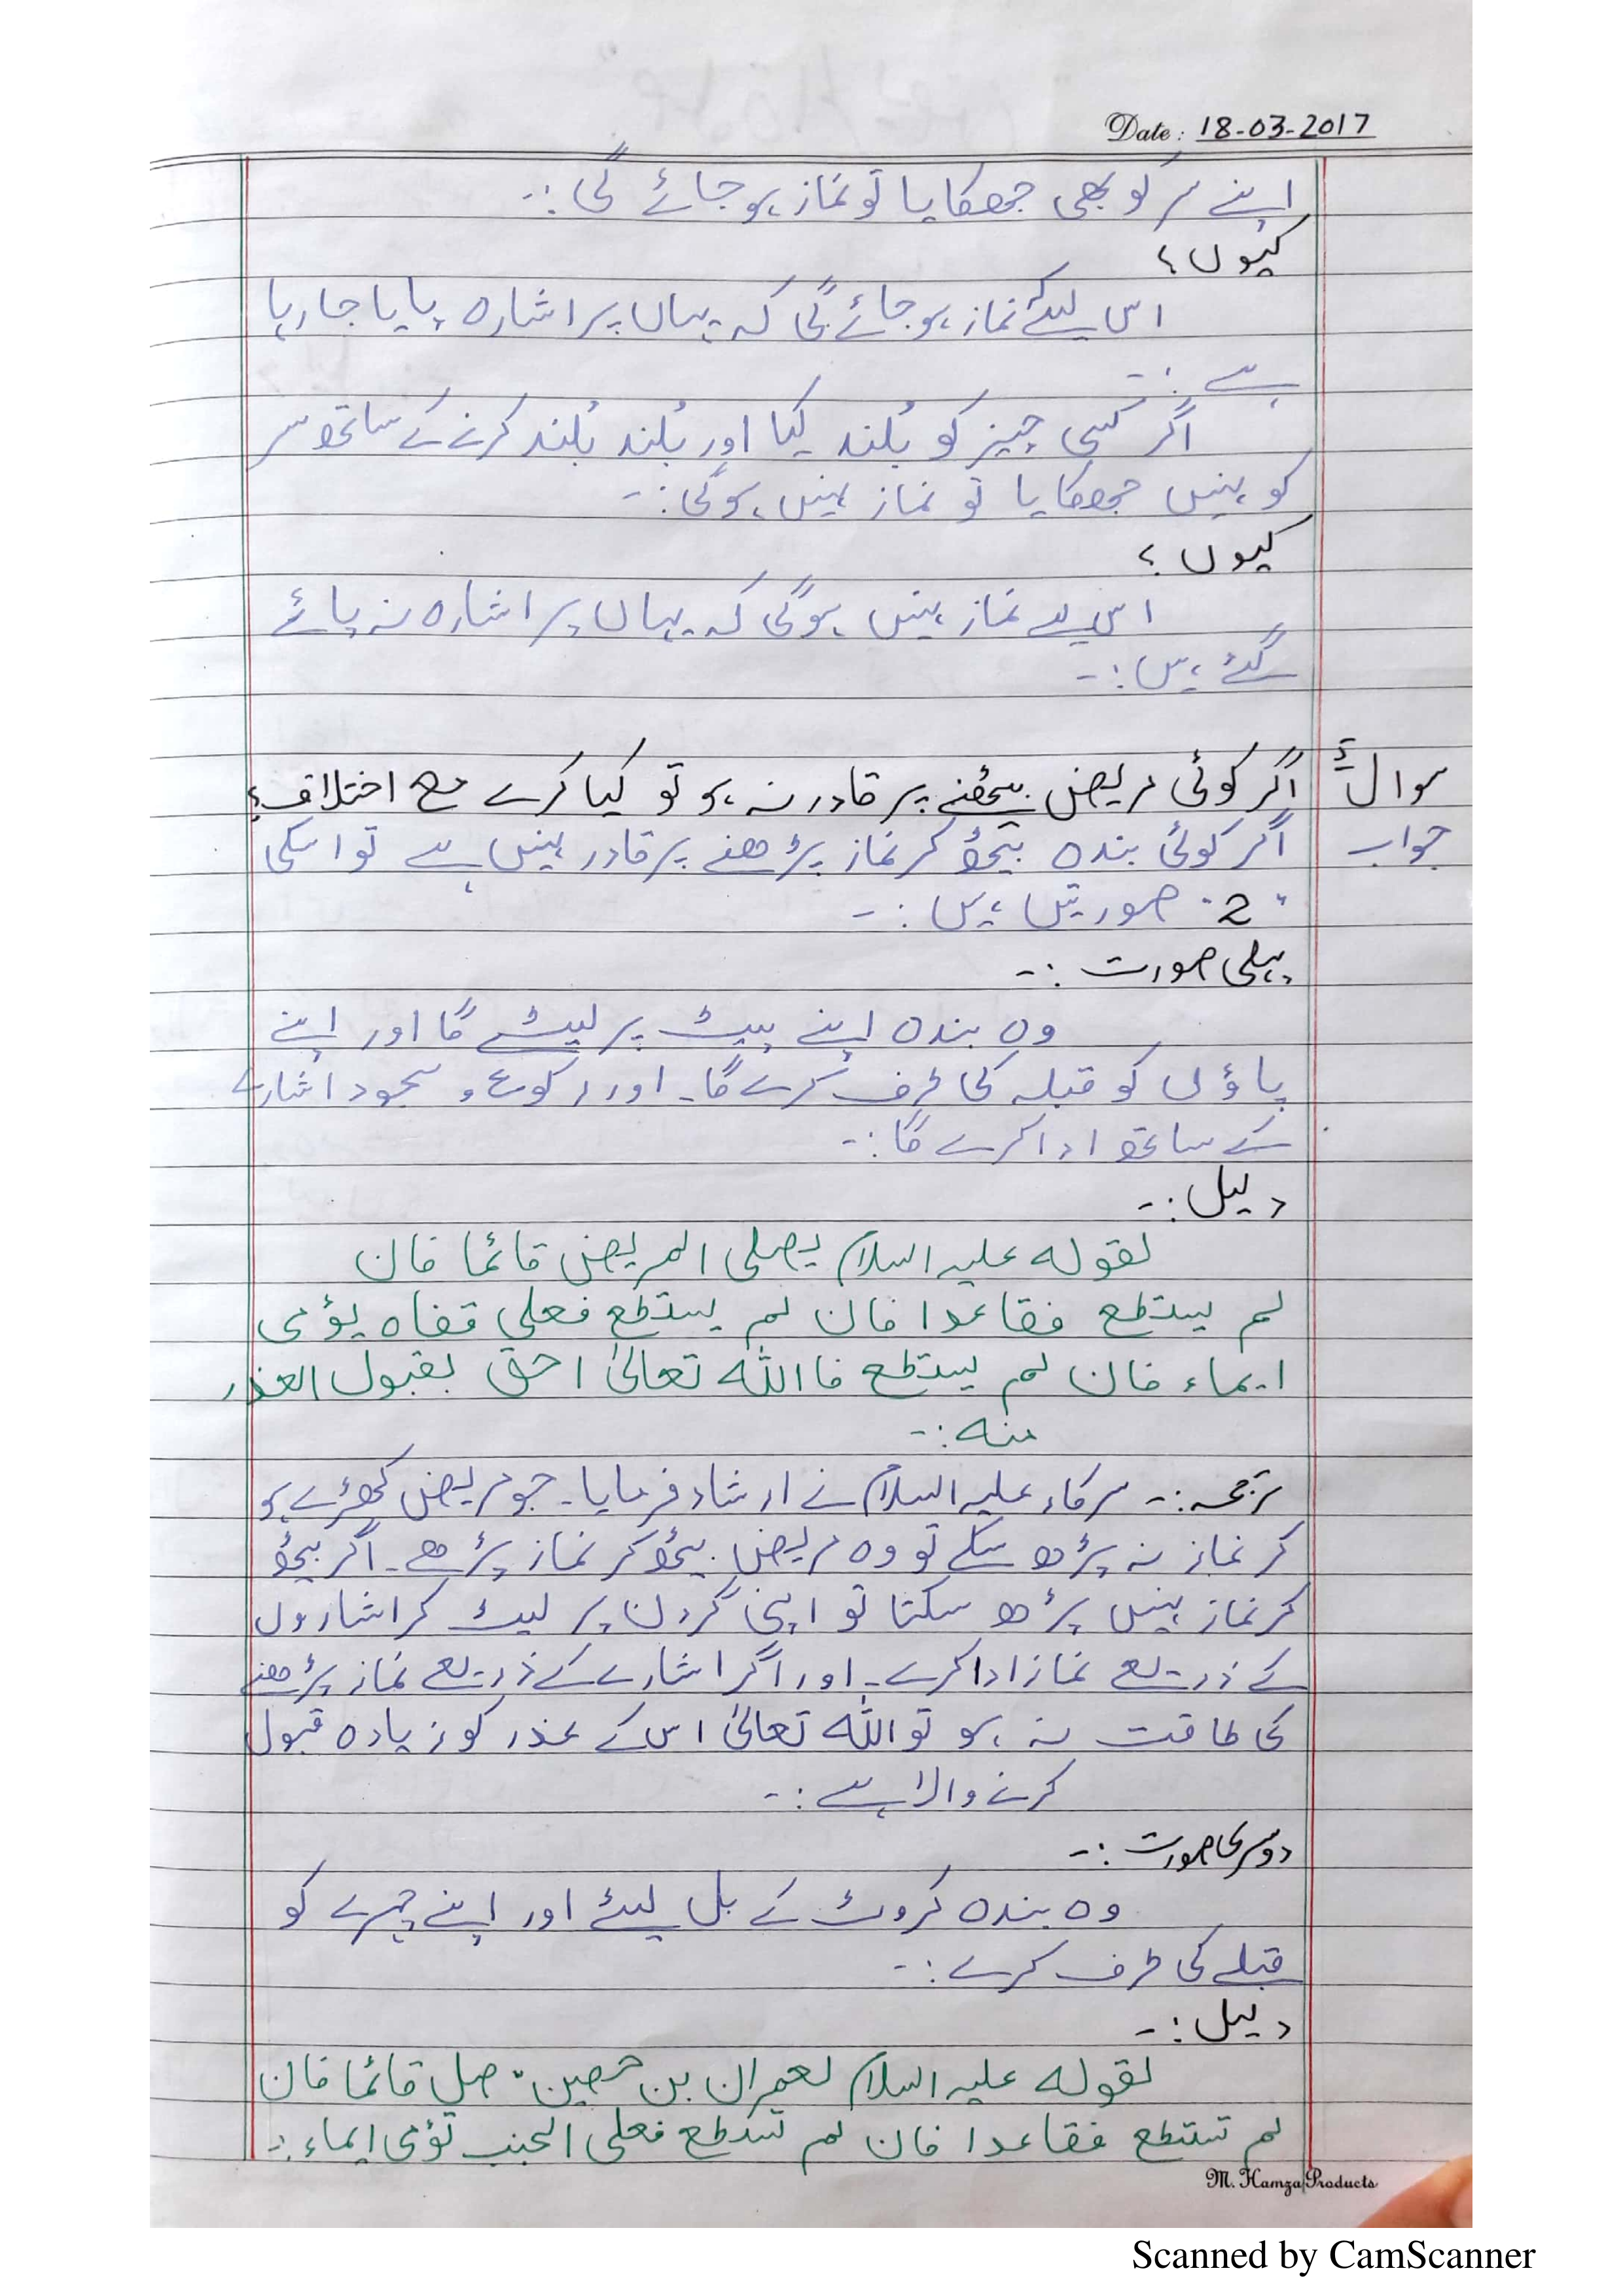 Date: 18-03-2017
اپنے سر کو بھی جھکایا تو نماز ہو جائے گی :۔
کیوں ؟
اس لیئے نماز ہو جائے گی کہ یہاں پر اشارہ پایا جا رہا
ہے :۔
اگر کسی چیز کو بُلند کیا اور بُلند بُلند کرنے کے ساتھ سر
کو نہیں جھکایا تو نماز نہیں ہوگی :۔
کیوں ؟
اس لے نماز نہیں ہوگی کہ یہاں پر اشارہ نہ پائے
گئے ہیں :۔
سوال اگر کوئی مریض بیٹھنے پر قادر نہ ہو تو کیا کرے مع اختلاف ؟
جواب اگر کوئی بندہ بیٹھ کر نماز پڑھنے پر قادر نہیں ہے تو اسکی
"2" صورتیں ہیں :۔
پہلی صورت :۔
وہ بندہ اپنے پیٹ پر لیٹے گا اور اپنے
پاؤں کو قبلہ کی طرف کرے گا۔ اور رکوع و سجود اشارے
کے ساتھ ادا کرے گا :۔
دلیل :۔
لقوله علیه السلام یصلی المریض قائما فان
لم یستطع فقاعدا فان لم یستطع فعلی قفاه یؤمی
ایماء فان لم یستطع فاالله تعالیٰ احق بقبول العذر
منه :۔
ترجمہ :۔ سرکار علیہ السلام نے ارشاد فرمایا۔ جو مریض کھڑے ہو
کر نماز نہ پڑھ سکے تو وہ مریض بیٹھ کر نماز پڑھے۔ اگر بیٹھ
کر نماز نہیں پڑھ سکتا تو اپنی گردن پر لیٹ کر اشاروں
کے ذریعے نماز ادا کرے۔ اور اگر اشارے کے ذریعے نماز پڑھنے
کی طاقت نہ ہو تو اللہ تعالیٰ اس کے عذر کو زیادہ قبول
کرنے والا ہے :۔
دوسری صورت :۔
وہ بندہ کروٹ کے بل لیٹے اور اپنے چہرے کو
قبلے کی طرف کرے :۔
دلیل :۔
لقوله علیه السلام لعمران بن حصین " صل قائما فان
لم تستطع فقاعدا فان لم تستطع فعلی الجنب تؤمی ایماء :۔
M. Hamza Products
Scanned by CamScanner